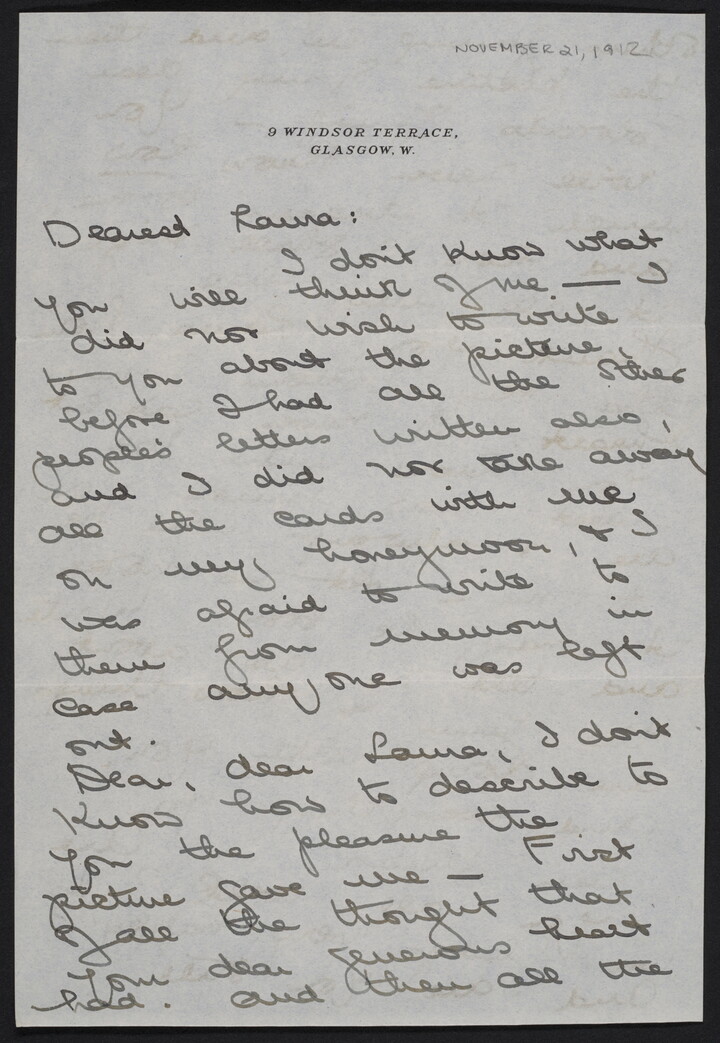 NOVEMBER 21, 1912
9 WINDSOR TERRACE,
GLASGOW. W.
Dearest Laura:
I don't know what
you will think of me — I
did not wish to write
to you about the picture,
before I had all the other
people's letters written also,
and I did not take away
all the cards with me
on my honeymoon, & I
was afraid to write to
them from memory in
case any one was left
out.
Dear, dear Laura, I don't
know how to describe to
you the pleasure the
picture gave me — First
of all the thought that
your dear generous heart
had. and then all the